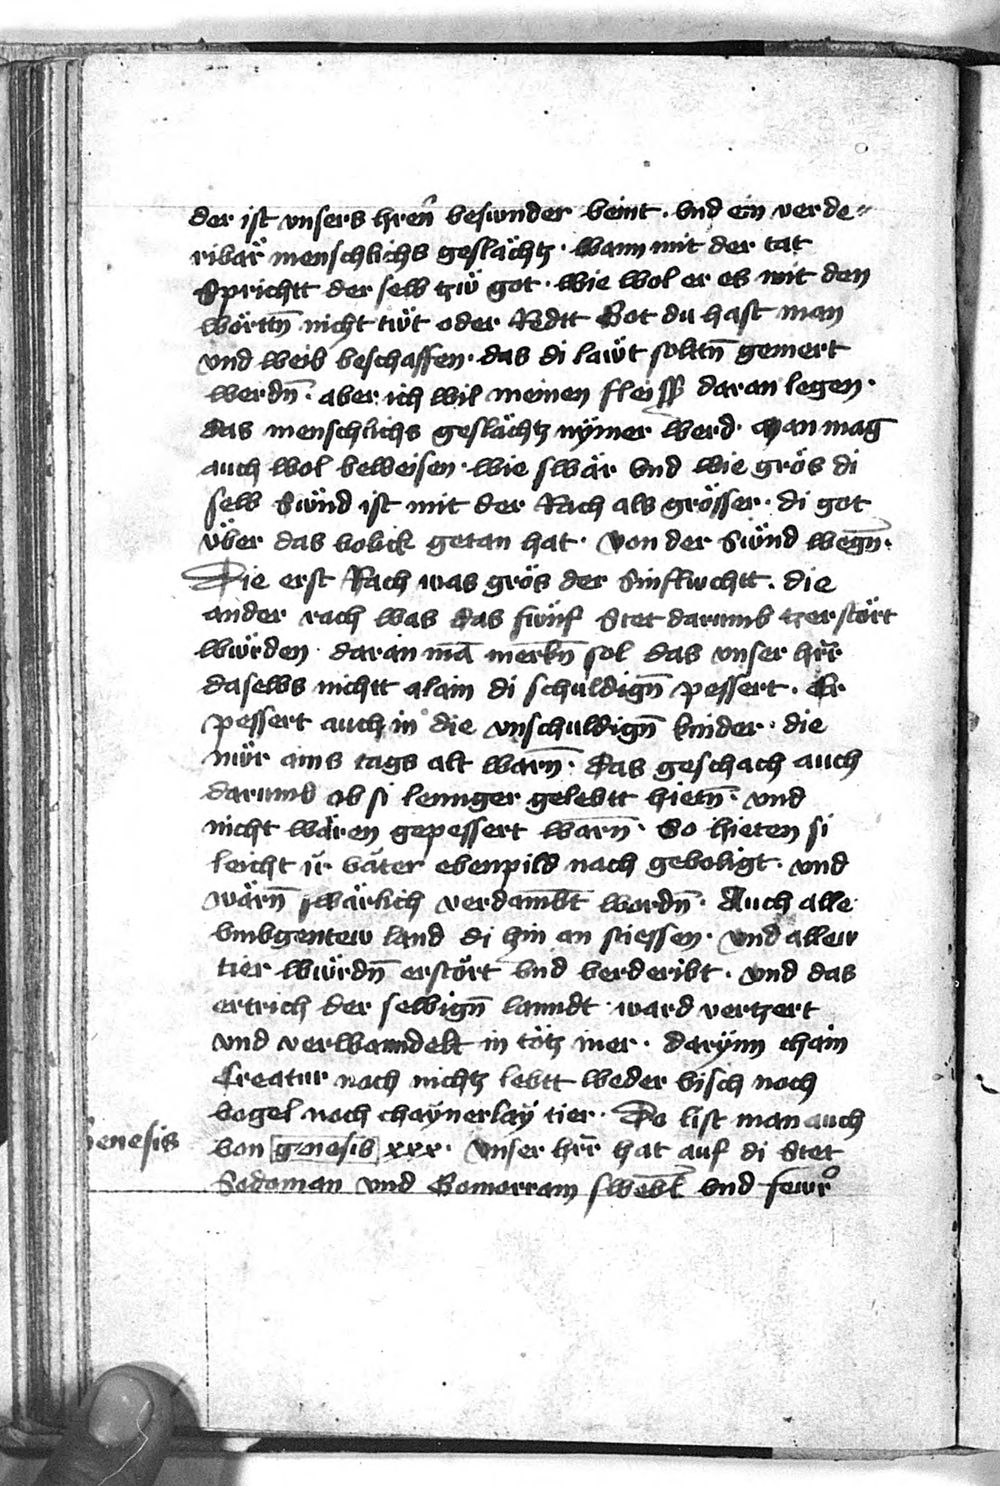 der ist vnsers hren̄ besunder veint · vnd ein verde⸗
ribär menschlichs geslächtz · wann mit der tat
Sprichtt der selb tzw̎ got · wie wol er es mit den
wörttn̄ nicht tw̎t oder Redtt Got du hast man
vnd weib beschaffen · das di lawt̎ solttn̄ gemert
werdn̄ · aber ich wil meinen fleiss daran legen ·
das menschlichs geslächtz nÿmer werd · Man mag
auch wol beweisen · wie swär vnd wie grös di
selb Sw̎nd ist mit der Rach als grösser · di got
über das volick getan hat · von der Sw̎nd wegn̄ ·
Die erst Rach was grös der Sinflwchtt · die
ander rach was das fw̎nf Stet darumb tzerstört
wurden · daran mā merkn̄ sol das vnser hr̄r
daselbs nichtt alain di schuldign̄ pessert · Er
pessert auch in die vnschuldign̄ kinder · die
nw̎r ains tags alt warn̄ · Das geschach auch
darumb ob si lennger gelebtt hietn̄ · vnd
nicht wären gepessert warn̄ · So hieten si
leicht ir väter ebenpild nach gevoligt · vnd
wärn̄ swärlich verdambt̄ wordn̄ · Auch alle
vmbgentew land di hin an stiessen · vnd allew
tier wurdn̄ erstört vnd verderibt · vnd das
ertrich der selbign̄ lanndt · ward vertzert
vnd verwanndelt in tötz mer · darÿnn chain
Creatur noch nichtz lebtt weder visch noch
vogel noch chaÿnerlaÿ tier · Do list man auch
Genesis
von genesis xxx · Vnser hr̄r hat auf di Stet
Sodoman vnd Gomorram swebl̄ vnd fewr